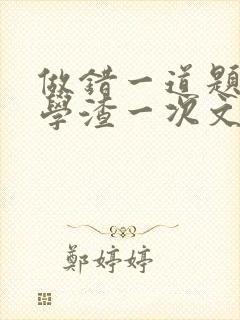 做錯一道題
學渣一次文
鄭婷婷